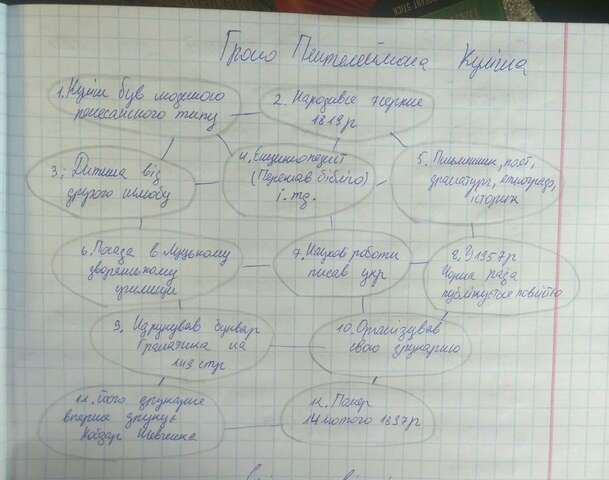 Гроно Пантелеймона Куліша
1. Куліш був
типу
2. Народився 7 серпня
1819 р
3. Дитина від
другого шлюбу
4. Енциклопедист
(Переклав біблію)
і. тд.
5. Письменник, поет,
драматург, етнограф,
історик
6. Посада в Луцькому
дворянському
училищі
7. Наукові роботи
писав укр
8. У 1957 р
Чорна рада
публікується повністю
9. Надрукував буквар
Граматика на
149 стр
10. Організував
свою друкарню
11. Його друкарня
вперше друкує
Кобзар Шевченка
12. Помер
14 лютого 1897 р